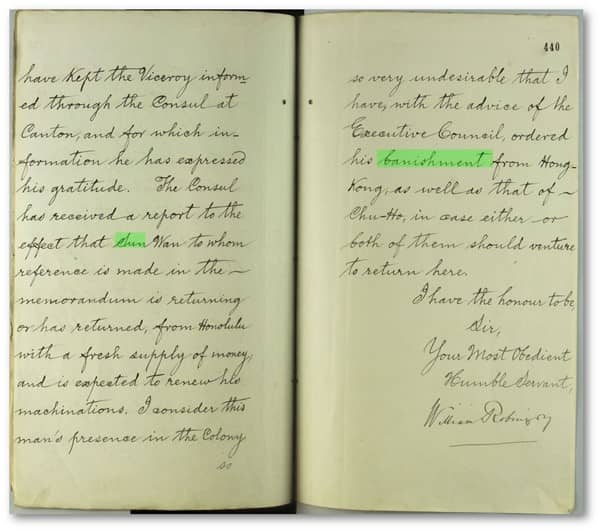 have kept the Viceroy inform-
ed through the Consul at
Canton, and for which in-
formation he has expressed
his gratitude. The Consul
has received a report to the
effect that Sun Wan to whom
reference is made in the ~
memorandum is returning
or has returned, from Honolulu
with a fresh supply of money,
and is expected to renew his
machinations. I consider this
man's presence in the Colony
so
440
so very undesirable that I
have, with the advice of the
Executive Council, ordered
his banishment from Hong-
Kong, as well as that of ~
Chu-Ho, in case either or
both of them should venture
to return here.
I have the honour to be,
Sir,
Your Most Obedient
Humble Servant,
William Robinson